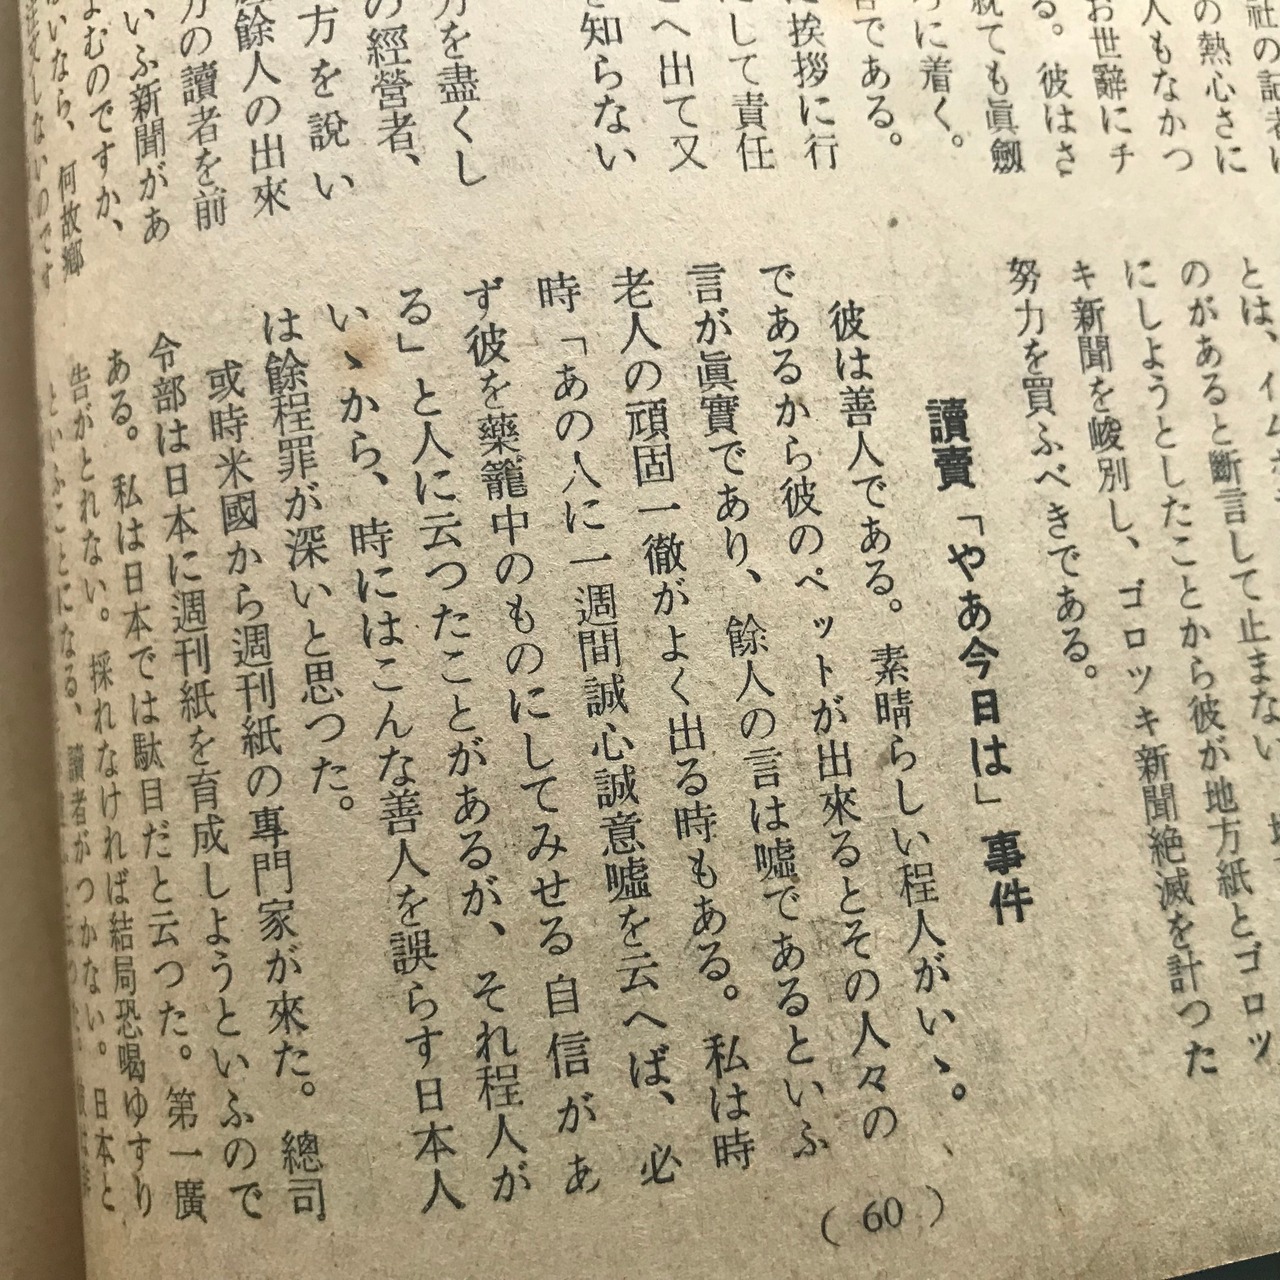 社の記者は
の熱心さに
人もなかつ
お世辭にチ
る。彼はさ
就ても眞劔
ろに着く。
である。
に挨拶に行
にして責任
へ出て又
知らない
力を盡くし
の經營者、
方を說い
餘人の出來
力の讀者を前
いふ新聞があ
よむのですか、
いなら、何故鄕
しないのです
とは、
のがあると斷言して止まない。
にしようとしたことから彼が地方紙とゴロッ
キ新聞を峻別し、ゴロツキ新聞絶滅を計つた
努力を買ふべきである。
讀賣「やあ今日は」事件
彼は善人である。素晴らしい程人がいゝ。
であるから彼のペットが出來るとその人々の
言が眞實であり、餘人の言は嘘であるといふ
老人の頑固一徹がよく出る時もある。私は時
時「あの人に一週間誠心誠意嘘を云へば、必
ず彼を藥籠中のものにしてみせる自信があ
る」と人に云つたことがあるが、それ程人が
いゝから、時にはこんな善人を誤らす日本人
は餘程罪が深いと思つた。
或時米國から週刊紙の專門家が來た。總司
令部は日本に週刊紙を育成しようといふので
ある。私は日本では駄目だと云つた。第一廣
告がとれない。採れなければ結局恐喝ゆすり
といふことになる、讀者がつかない。日本と
(60)